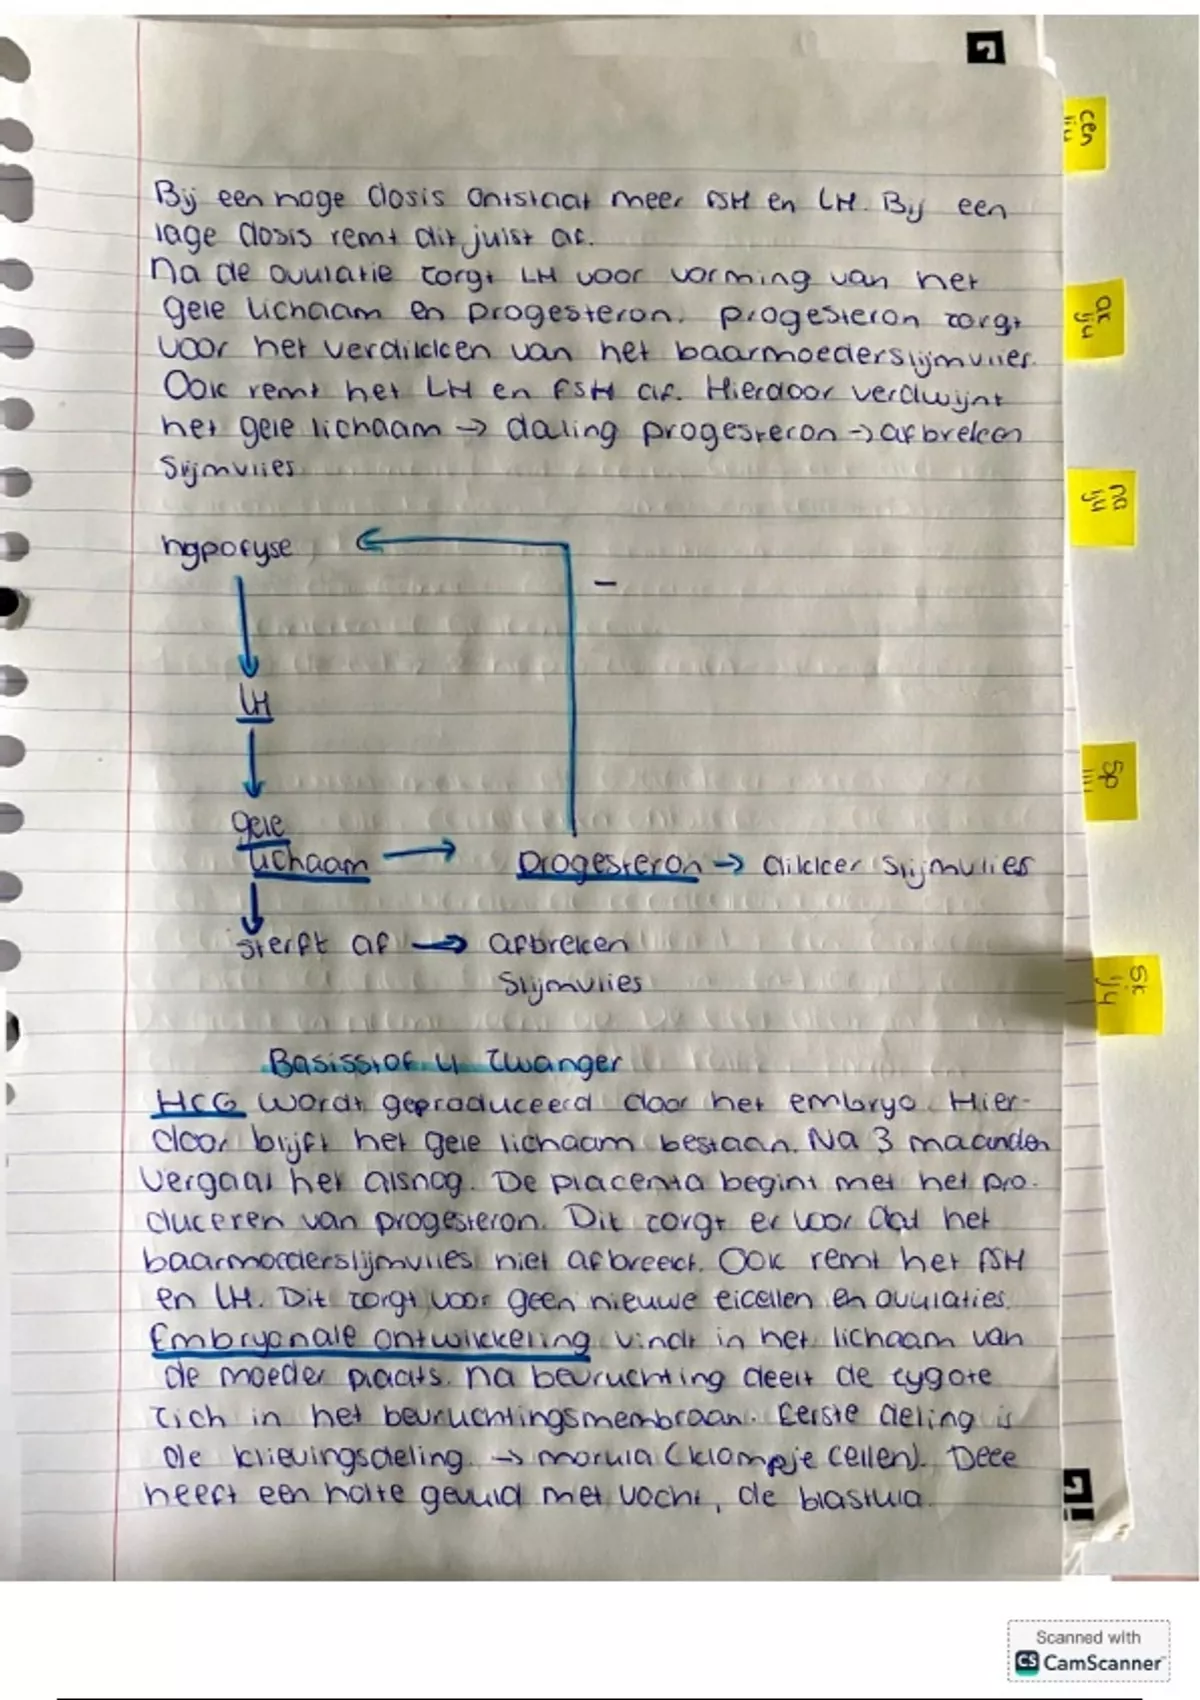 Bij een hoge dosis ontstaat meer FSH en LH. Bij een
lage dosis remt dit juist af.
Na de ovulatie zorgt LH voor vorming van het
gele lichaam en progesteron. progesteron zorgt
voor het verdikken van het baarmoederslijmvlies.
Ook remt het LH en FSH af. Hierdoor verdwijnt
het gele lichaam → daling progesteron → afbreken
Slijmvlies
hypofyse
-
LH
gele
lichaam → progesteron → dikker slijmvlies
sterft af → afbreken
Slijmvlies
Basisstof 4 Zwanger
HCG wordt geproduceerd door het embryo. Hier-
door blijft het gele lichaam bestaan. Na 3 maanden
vergaat het alsnog. De placenta begint met het pro-
duceren van progesteron. Dit zorgt er voor dat het
baarmoederslijmvlies niet afbreekt. Ook remt het FSH
en LH. Dit zorgt voor geen nieuwe eicellen en ovulaties.
Embryonale ontwikkeling vindt in het lichaam van
de moeder plaats. na bevruchting deelt de zygote
zich in het bevruchtingsmembraan. Eerste deling is
de klievingsdeling. → morula (klompje cellen). Deze
heeft een holte gevuld met vocht, de blastula.
cen
ak
na
sp
sk
Scanned with
CS CamScanner